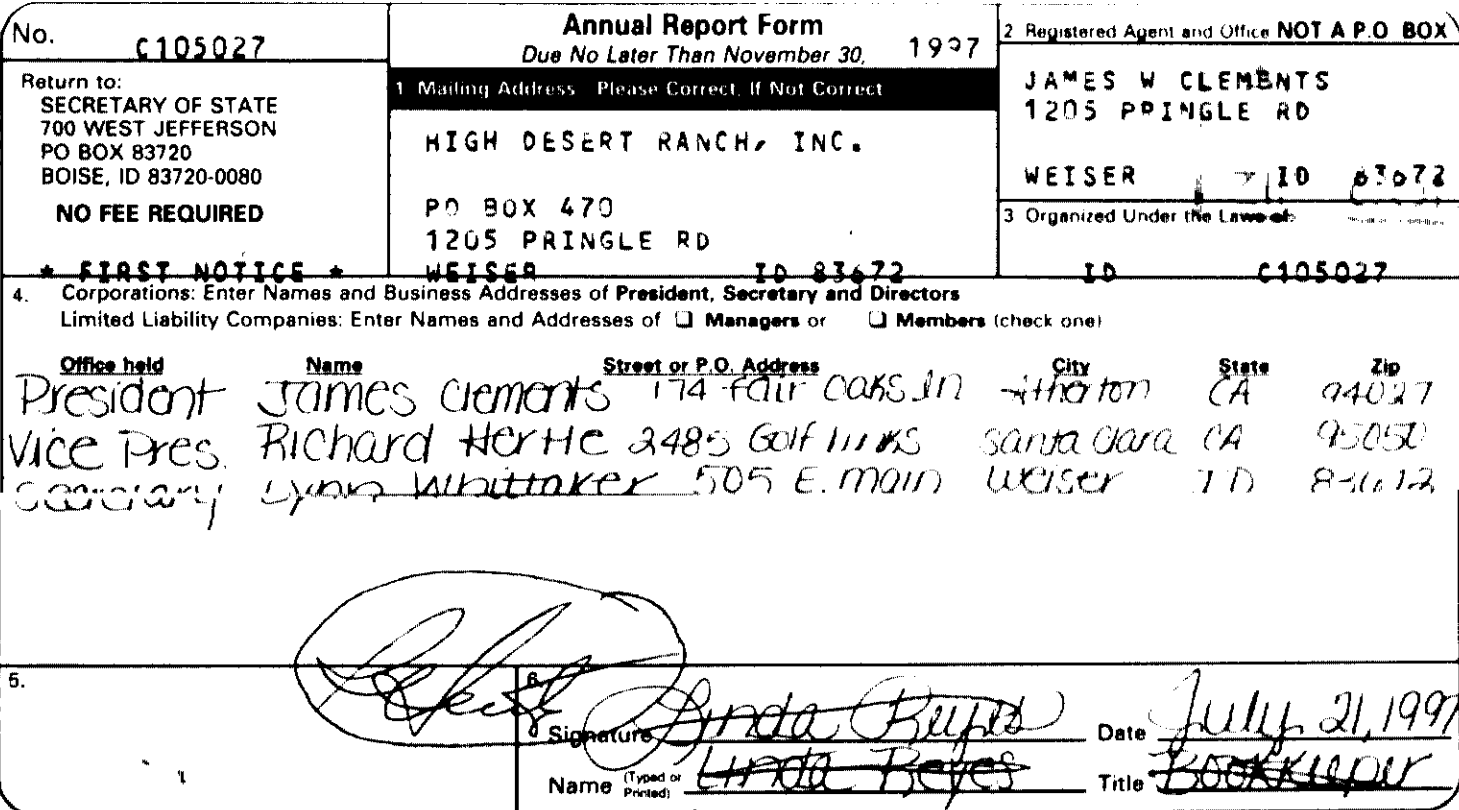 No. C105027
Return to:
SECRETARY OF STATE
700 WEST JEFFERSON
PO BOX 83720
BOISE, ID 83720-0080
NO FEE REQUIRED
* FIRST NOTICE *
Annual Report Form
Due No Later Than November 30, 1997
1 Mailing Address Please Correct, If Not Correct
HIGH DESERT RANCH, INC.
PO BOX 470
1205 PRINGLE RD
WEISER ID 83672
2 Registered Agent and Office NOT A P.O BOX
JAMES W CLEMENTS
1205 PRINGLE RD
WEISER ID 83672
3 Organized Under the Laws of:
ID C105027
4. Corporations: Enter Names and Business Addresses of President, Secretary and Directors
Limited Liability Companies: Enter Names and Addresses of ❑ Managers or ❑ Members (check one)
Office held Name Street or P.O. Address City State Zip
President James Clements 174 Fair Oaks Ln Atherton CA 94027
Vice Pres. Richard Hertle 2485 Golf Links Santa Clara CA 95050
Secretary Lynn Whittaker 505 E. Main Weiser ID
5.
6.
Signature Linda Reyes Date July 21, 1997
Name (Typed or Printed) Linda Reyes Title Bookkeeper